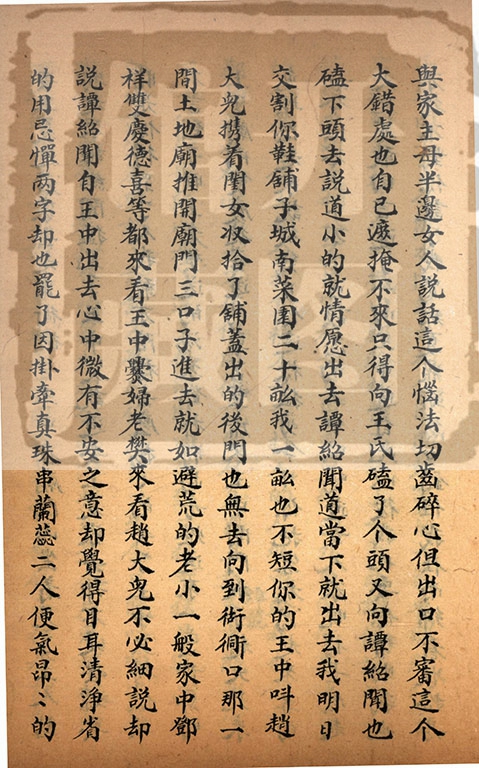 與家主母半邊女人說話這个惱法切齒碎心但出口不審這个
大錯處也自已遮掩不來只得向王氏磕了个頭又向譚紹聞也
磕下頭去說道小的就情愿出去譚紹聞道當下就出去我明日
交割你鞋鋪子城南菜園二十畆我一畆也不短你的王中呌趙
大兒携着閨女收拾了鋪蓋出的後門也無去向到衚衕口那一
間土地廟推開廟門三口子進去就如避荒的老小一般家中鄧
祥雙慶德喜等都來看王中爨婦老樊來看趙大兒不必細說却
說譚紹聞自王中出去心中微有不安之意却覺得目耳清淨省
的用忌憚两字却也罷了因掛牽真珠串蘭蕊二人便氣昂〻的